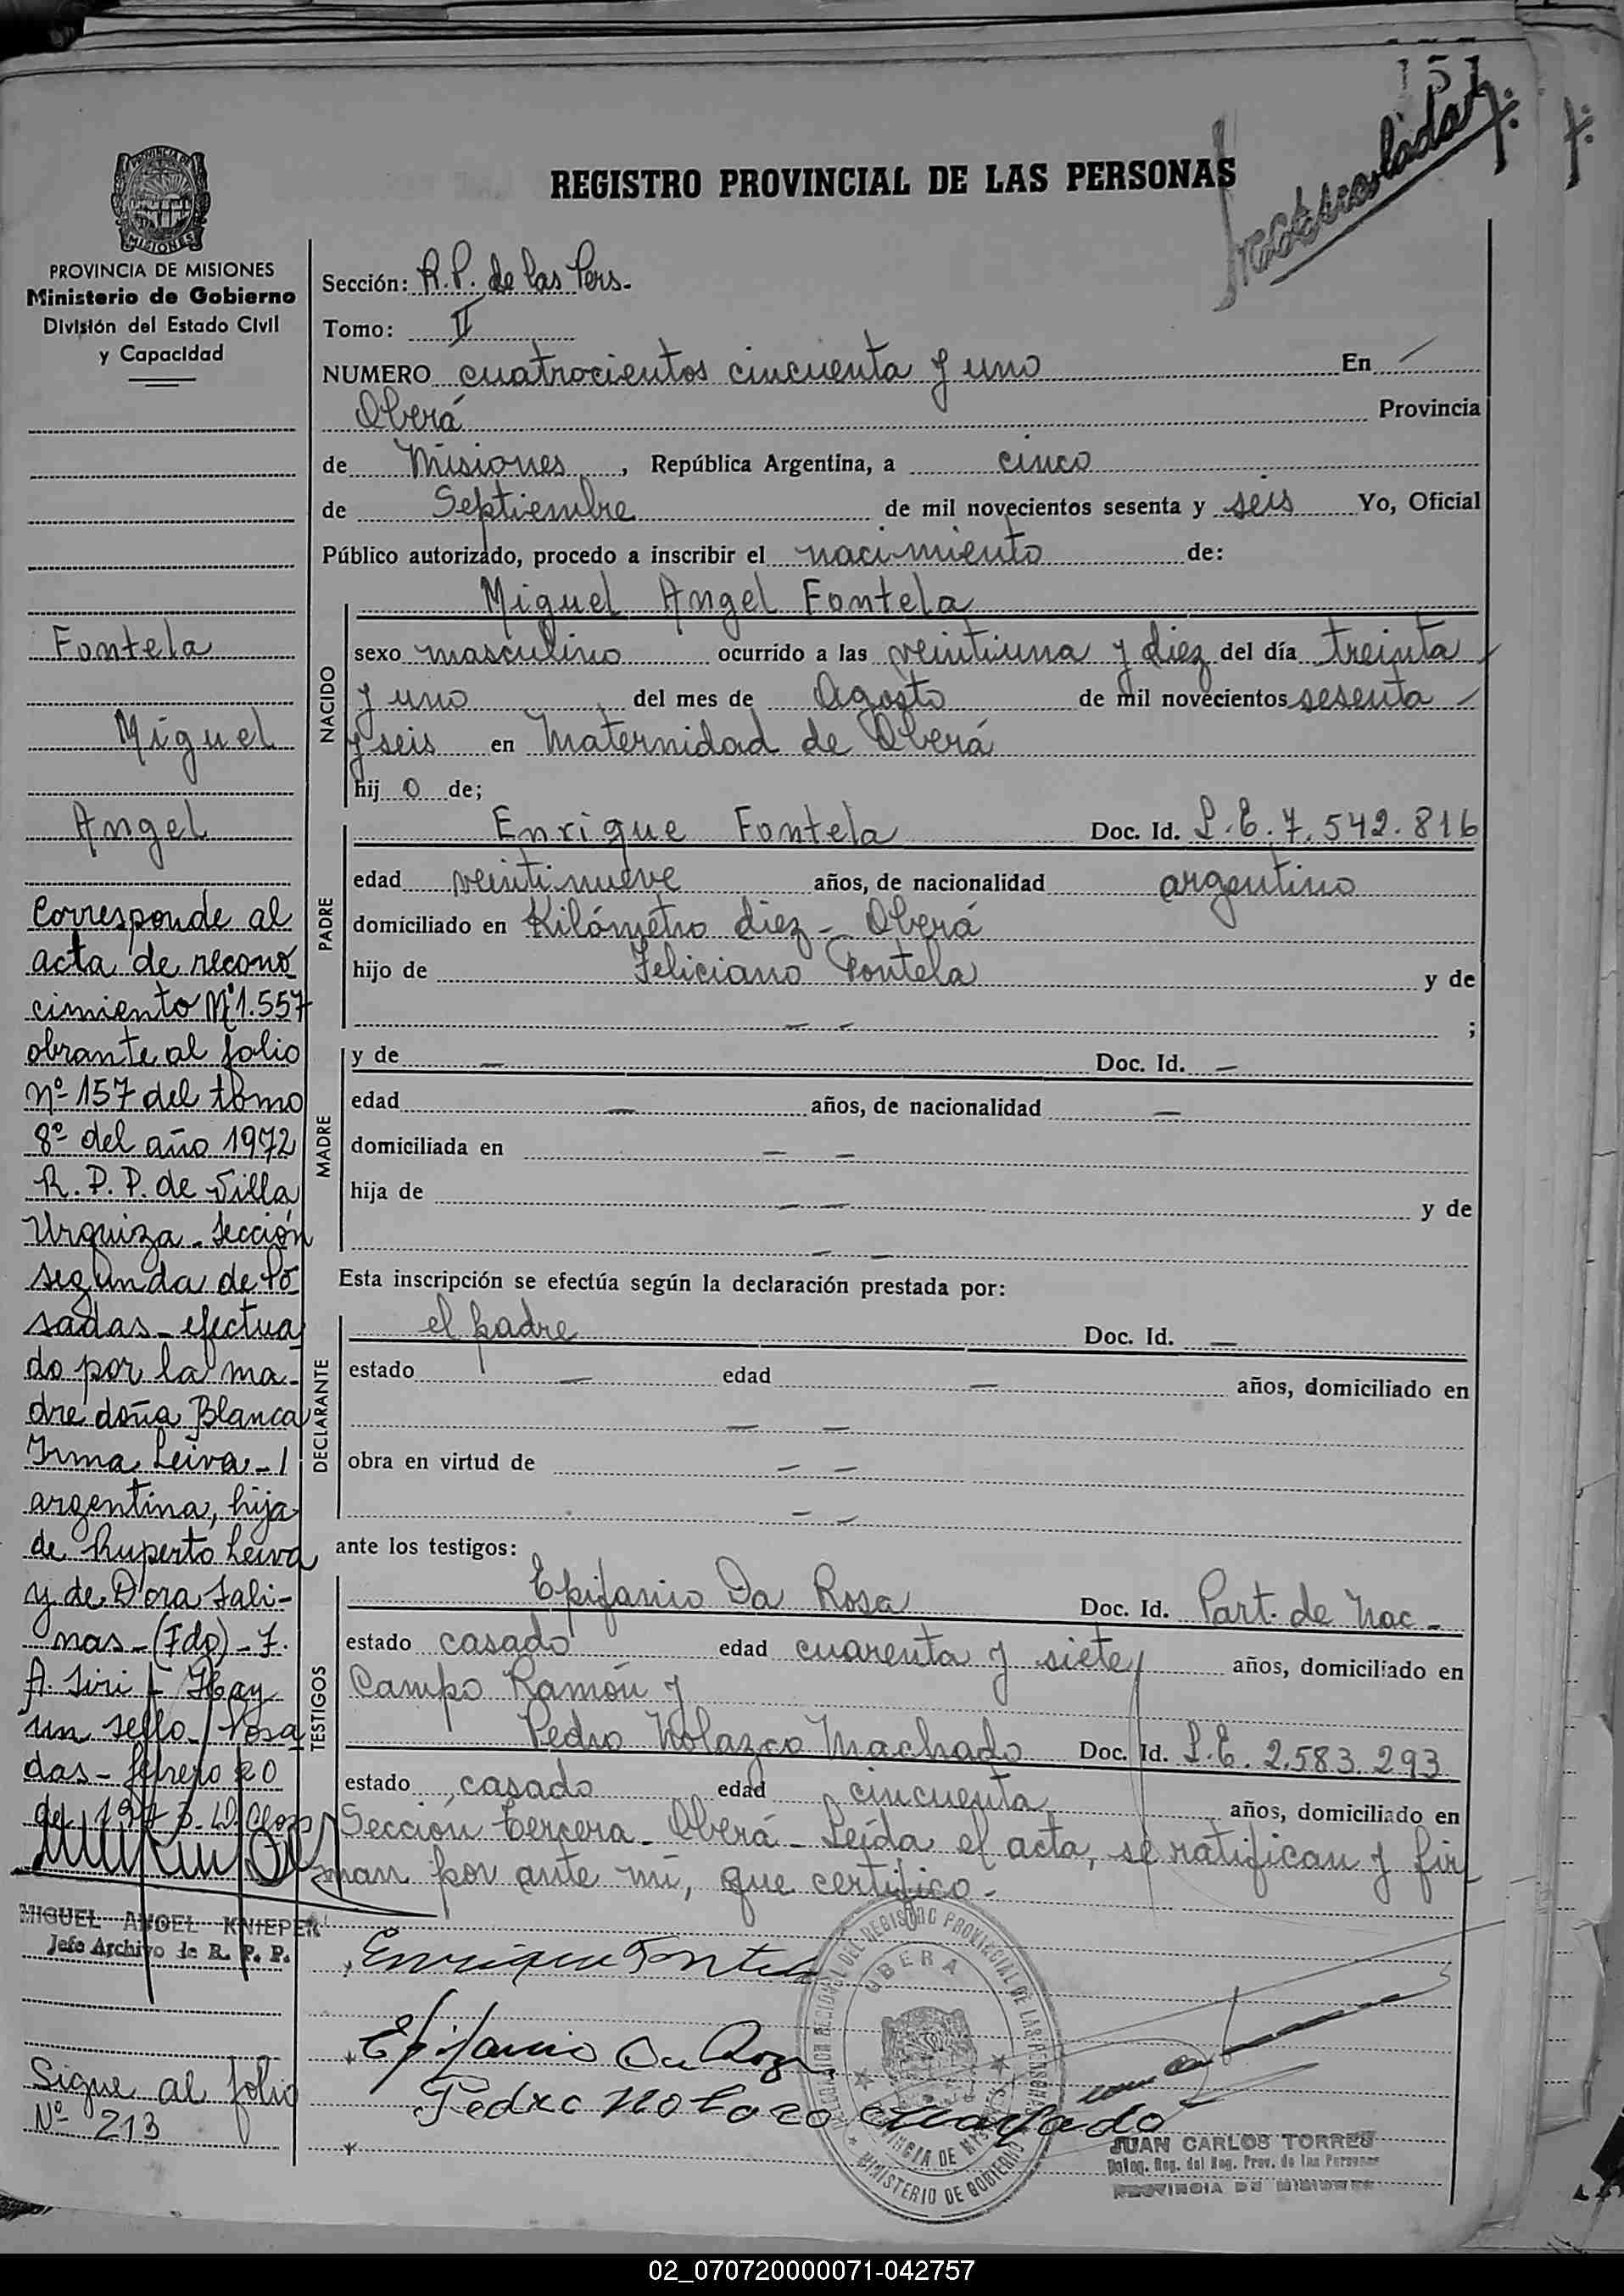 151
Matriculada
REGISTRO PROVINCIAL DE LAS PERSONAS
PROVINCIA DE MISIONES
Ministerio de Gobierno
División del Estado Civil
y Capacidad
Sección: R.P. de las Pers.
Tomo: II
NUMERO cuatrocientos cincuenta y uno En
Oberá Provincia
de Misiones, República Argentina, a cinco
de Septiembre de mil novecientos sesenta y seis Yo, Oficial
Público autorizado, procedo a inscribir el nacimiento de:
NACIDO
Miguel Angel Fontela
sexo masculino ocurrido a las veintiuna y diez del día treinta
y uno del mes de Agosto de mil novecientos sesenta
y seis en Maternidad de Oberá
hij o de;
PADRE
Enrique Fontela Doc. Id. L.E. 7.542.816
edad veintinueve años, de nacionalidad argentino
domiciliado en Kilómetro diez - Oberá
hijo de Feliciano Fontela y de
— — ;
MADRE
y de — Doc. Id. —
edad — años, de nacionalidad —
domiciliada en — —
hija de — — y de
— —
Esta inscripción se efectúa según la declaración prestada por:
DECLARANTE
el padre Doc. Id. —
estado — edad — años, domiciliado en
— —
obra en virtud de — —
— —
ante los testigos:
TESTIGOS
Epifanio Da Rosa Doc. Id. Part. de Nac-
estado casado edad cuarenta y siete años, domiciliado en
Campo Ramón y
Pedro Nolazco Machado Doc. Id. L.E. 2.583.293
estado casado edad cincuenta años, domiciliado en
Sección tercera - Oberá - Leída el acta, se ratifican y fir
man por ante mi, que certifico-
Enrique Fontela
Epifanio Da Rosa
Pedro Nolazco Machado
DELEGACION REGIONAL DEL REGISTRO PROVINCIAL DE LAS PERSONAS
OBERA
PROVINCIA DE MISIONES
MINISTERIO DE GOBIERNO
JUAN CARLOS TORRES
Deleg. Reg. del Reg. Prov. de las Personas
PROVINCIA DE MISIONES
Fontela
Miguel
Angel
Corresponde al
acta de recono
cimiento Nº 1.557
obrante al folio
nº 157 del tomo
8º del año 1972
R. P. P. de Villa
Urquiza - Sección
segunda de Po
sadas - efectua
do por la ma-
dre doña Blanca
Irma Leiva -
argentina, hija
de Ruperto Leiva
y de Dora Sali-
nas - (Fdo) - F.
A. Siri - Hay
un sello - Posa
das - febrero 20
de 1973.
MIGUEL ANGEL KNIEPER
Jefe Archivo de R. P. P.
Sigue al folio
Nº 213
02_070720000071-042757